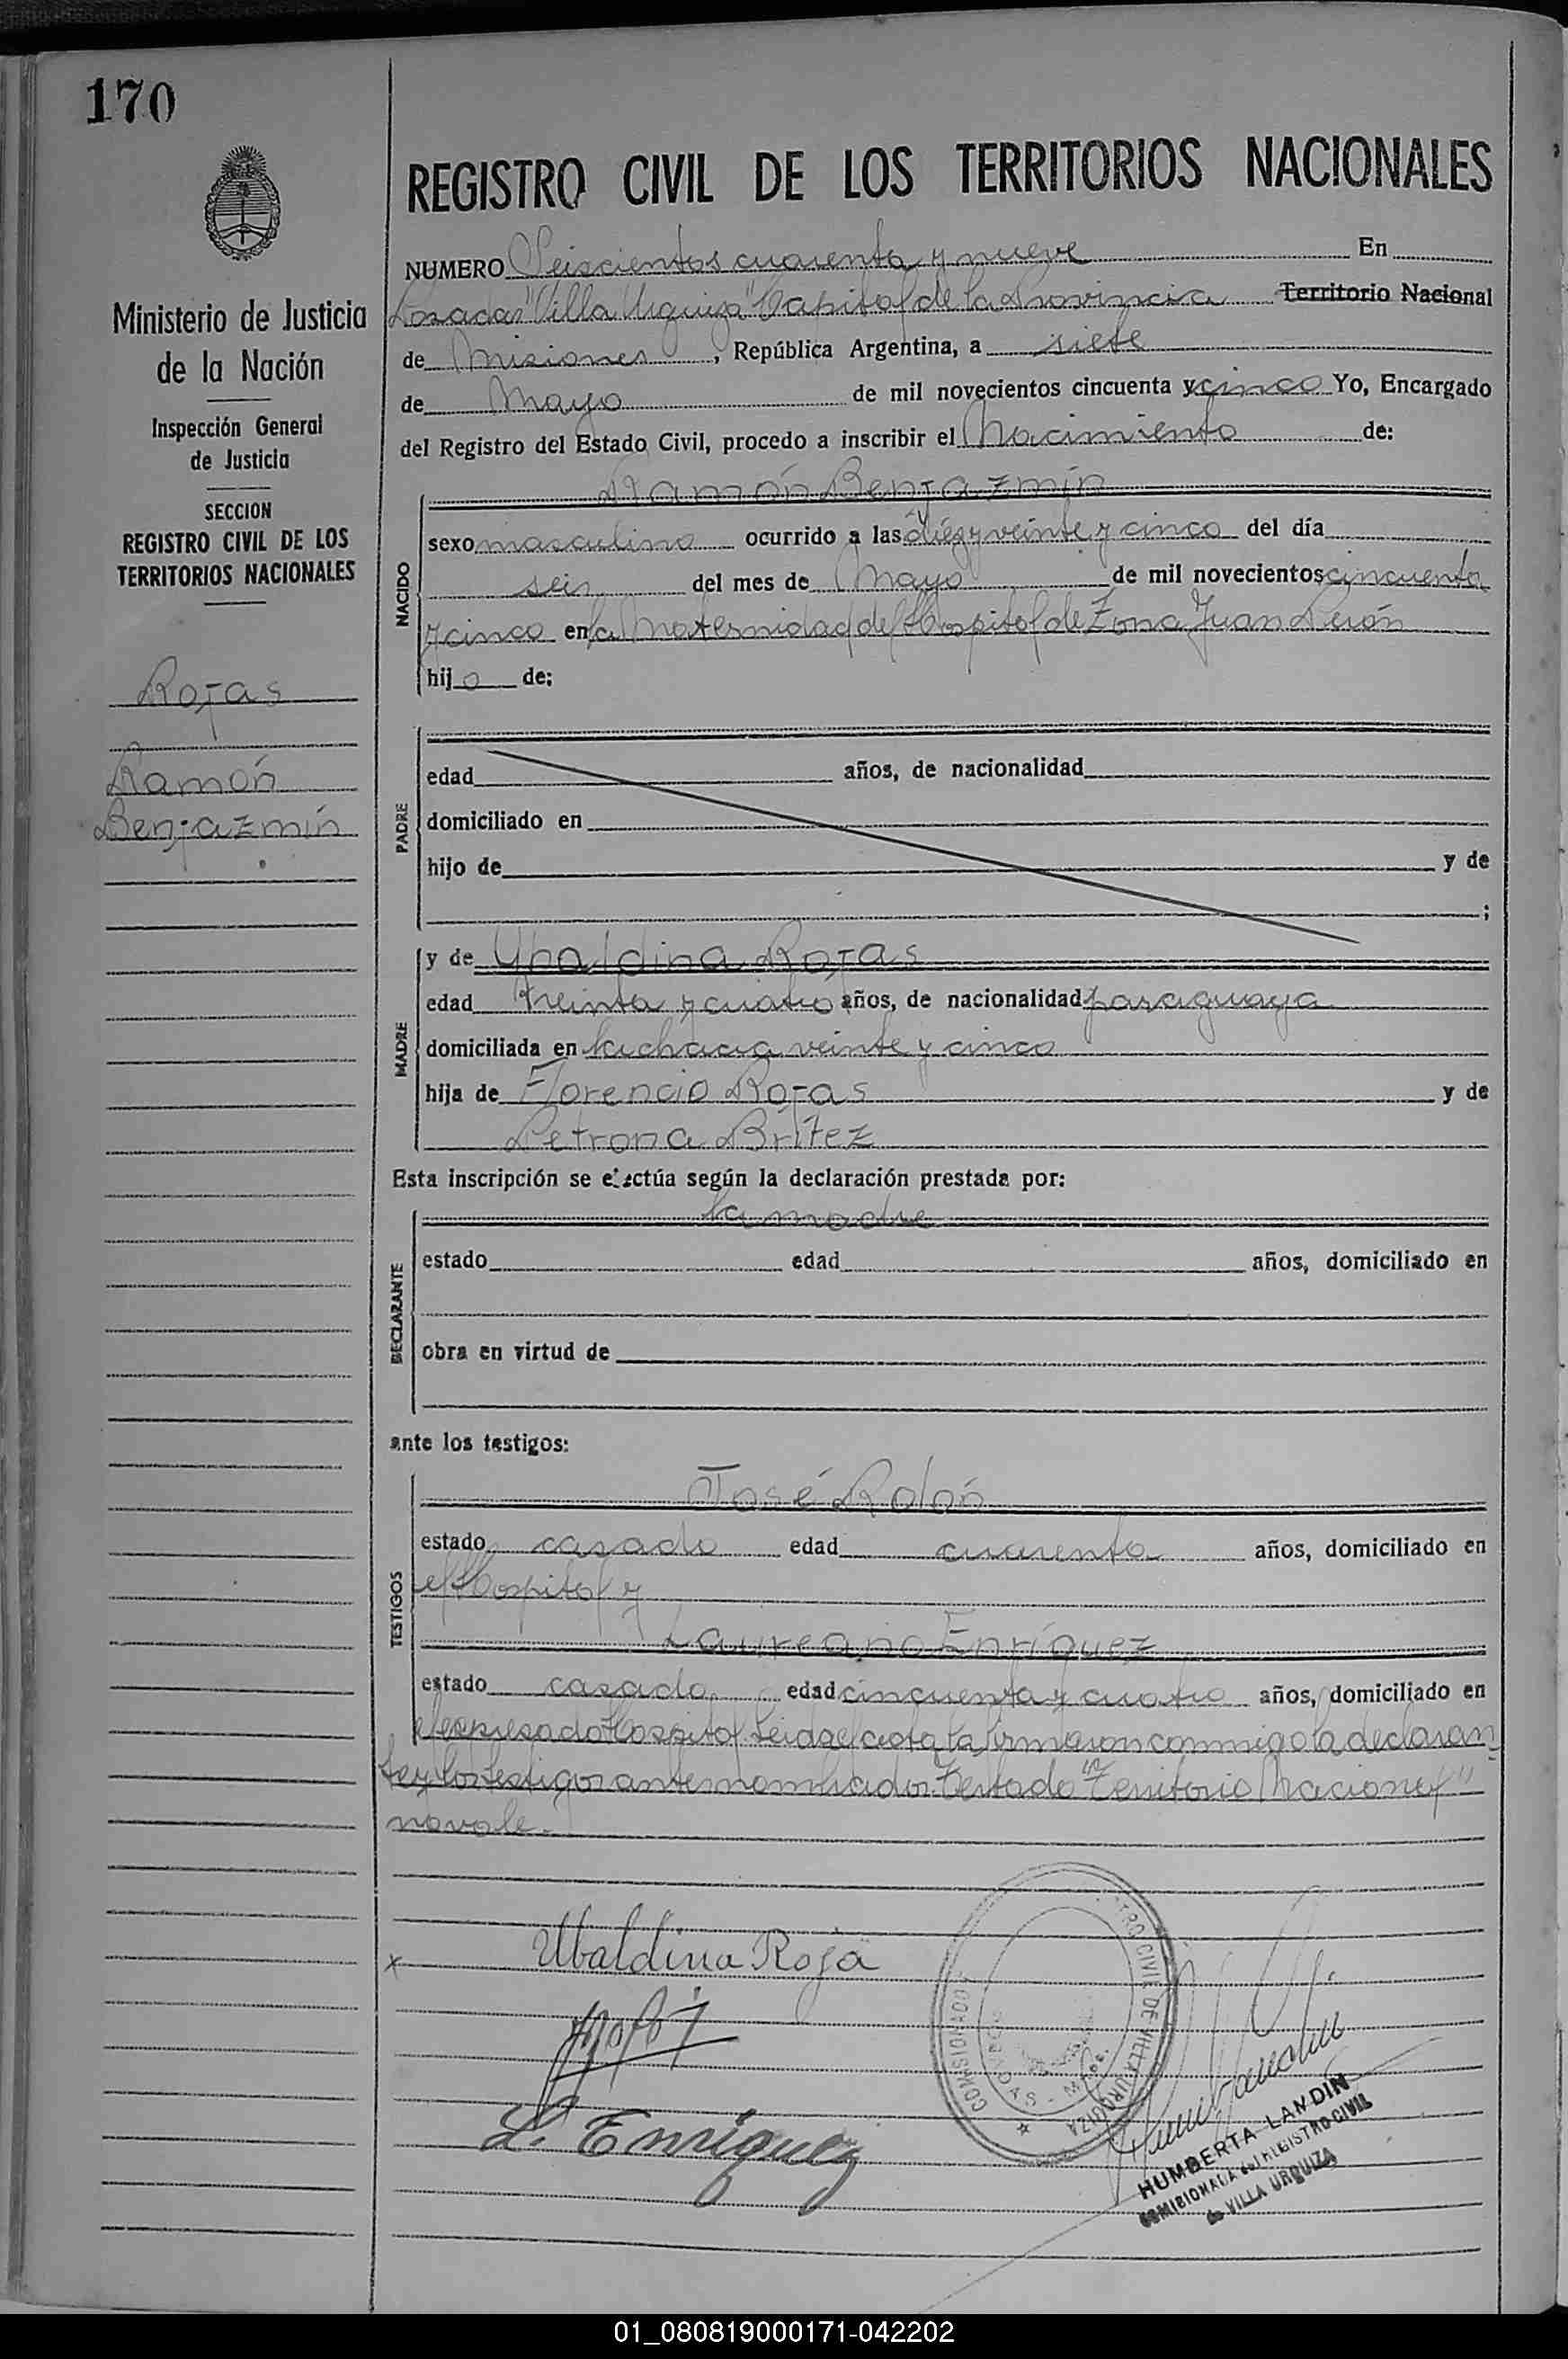 170
REGISTRO CIVIL DE LOS TERRITORIOS NACIONALES
NUMERO Seiscientos cuarenta y nueve En
Posadas "Villa Urquiza" Capital de la Provincia Territorio Nacional
de Misiones, República Argentina, a siete
de Mayo de mil novecientos cincuenta y cinco Yo, Encargado
del Registro del Estado Civil, procedo a inscribir el Nacimiento de:
Ministerio de Justicia
de la Nación
Inspección General
de Justicia
SECCION
REGISTRO CIVIL DE LOS
TERRITORIOS NACIONALES
Rojas
Ramón
Benjazmín
NACIDO
Ramón Benjazmín
sexo masculino ocurrido a las diez y veinte y cinco del día
seis del mes de Mayo de mil novecientos cincuenta
y cinco en la Maternidad del Hospital de Zona Juan Perón
hijo de:
PADRE
edad años, de nacionalidad
domiciliado en
hijo de y de
;
MADRE
y de Ubaldina Rojas
edad treinta y cuatro años, de nacionalidad paraguaya
domiciliada en la chacra veinte y cinco
hija de Florencio Rojas y de
Petrona Brítez
Esta inscripción se efectúa según la declaración prestada por:
DECLARANTE
la madre
estado edad años, domiciliado en
obra en virtud de
ante los testigos:
TESTIGOS
José Rolón
estado casado edad cuarenta años, domiciliado en
el Hospital y
Laureano Enríquez
estado casado edad cincuenta y cuatro años, domiciliado en
el expresado Hospital. Leida el acta la firmaron conmigo la declaran-
te y los testigos antes nombrados. Testado "Territorio Nacional"
no vale.-
x Ubaldina Roja
L. Enriquez
COMISIONADO REGISTRO CIVIL DE VILLA URQUIZA
POSADAS - Mnes.
HUMBERTA LANDIN
COMISIONADA del REGISTRO CIVIL
de VILLA URQUIZA
01_080819000171-042202